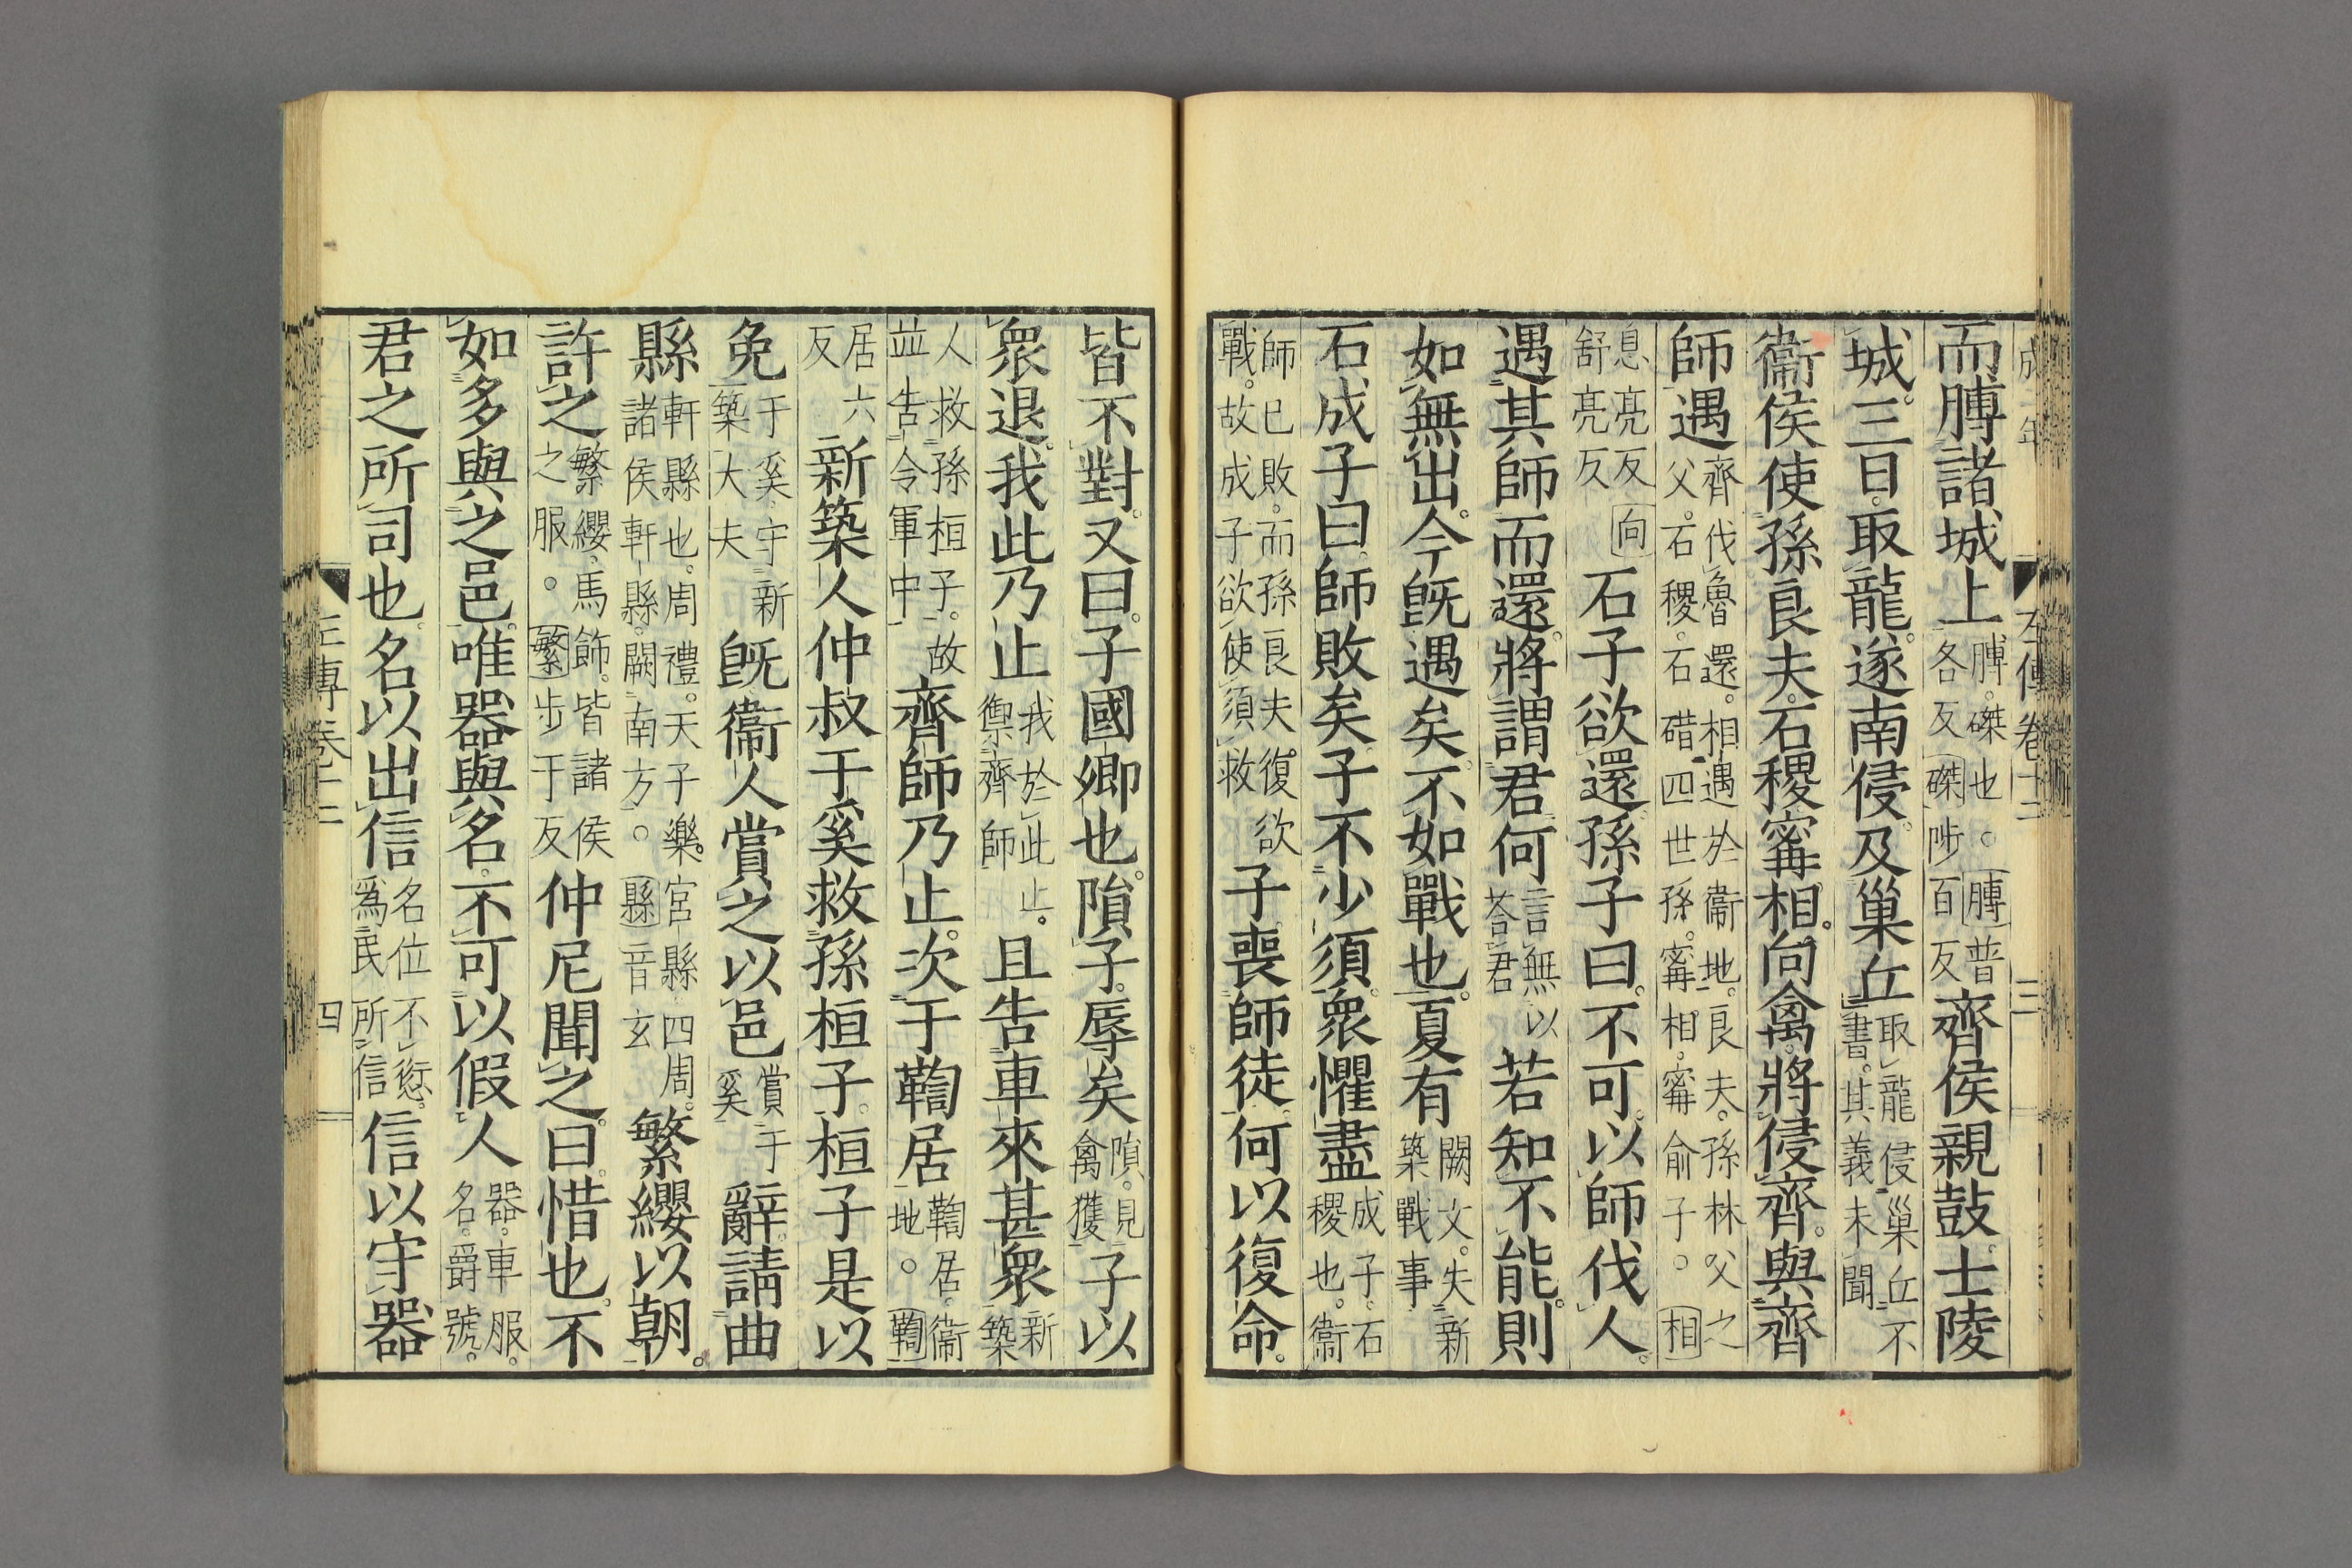 而膊諸城上膊磔也膊普各反磔陟百反齊侯親鼓士陵
城三日取龍遂南侵及巢丘取龍侵巢丘不書其義未聞
衞侯使孫良夫石稷甯相向禽將侵齊與齊
師遇齊伐魯還相遇於衞地良夫孫林父之父石稷石碏四世孫甯相甯俞子相
息亮反向舒亮反石子欲還孫子曰不可以師伐人
遇其師而還將謂君何言無以荅君若知不能則
如無出今旣遇矣不如戰也夏有闕文失新築戰事
石成子曰師敗矣子不少須衆懼盡成子石稷也衞
師已敗而孫良夫復欲戰故成子欲使須救子喪師徒何以復命
皆不對又曰子國卿也隕子辱矣隕見禽獲子以
衆退我此乃止我於此止禦齊師且告車來甚衆新築
人救孫桓子故並告令軍中齊師乃止次于鞫居鞫居衞地鞫
居六反新築人仲叔于奚救孫桓子桓子是以
免于奚守新築大夫旣衞人賞之以邑賞于奚辭請曲
縣軒縣也周禮天子樂宮縣四周諸侯軒縣闕南方縣音玄繁纓以朝
許之繁纓馬飾皆諸侯之服繁步于反仲尼聞之曰惜也不
如多與之邑唯器與名不可以假人器車服名爵號
君之所司也名以出信名位不愆爲民所信信以守器
左傳卷十二 三
四